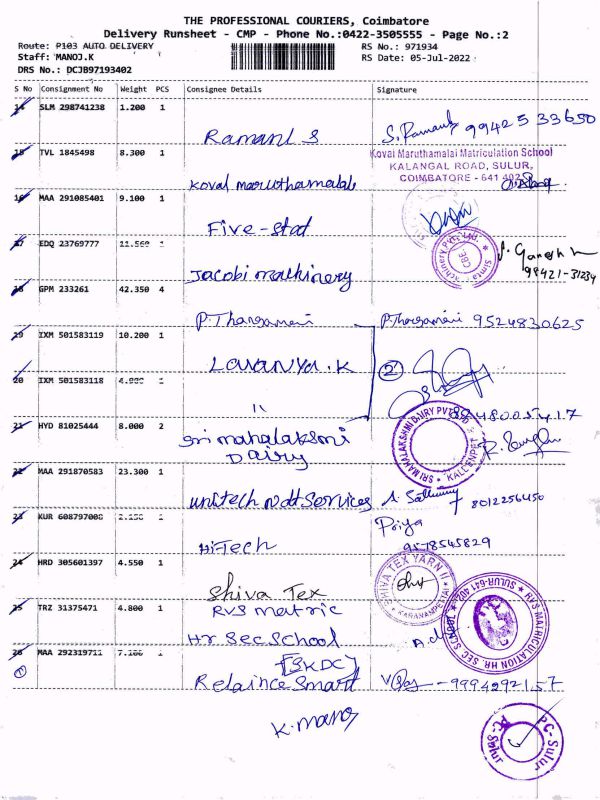 THE PROFESSIONAL COURIERS, Coimbatore
Delivery Runsheet - CMP - Phone No.:0422-3505555 - Page No.:2
Route: P103 AUTO DELIVERY RS No.: 971934
Staff: MANOJ.K RS Date: 05-Jul-2022
DRS No.: DCJB97193402
S No Consignment No Weight PCS Consignee Details Signature
14 SLM 298741238 1.200 1
Ramani S S. Ramani 99425 33650
15 TVL 1845498 8.300 1
Kovai Maruthamalai Matriculation School
KALANGAL ROAD, SULUR,
COIMBATORE - 641 402
Koval maruthamalai
16 MAA 291085401 9.100 1
Five-Stat
17 EDQ 23769777 11.560 1
Jacobi machinery Ganesh 98421-31234
18 GPM 233261 42.350 4
P. Thangamani P. Thangamani 9524830625
19 IXM 501583119 10.200 1
Lavanya.K 2
20 IXM 501583118 1
"
21 HYD 81025444 8.000 2
Sri mahalaksmi
Dairy
SRI MAHALAKSHMI DAIRY PVT LTD
22 MAA 291870583 23.300 1
unitech ndt Services 8012256450
23 KUR 1
HiTech Priya
9578545829
24 HRD 305601397 4.550 1
Shiva Tex
SHIVA TEX YARN
KARANAMPETTAI
25 TRZ 31375471 4.800 1
RVS matric
Hr Sec School
RVS MATRICULATION HR. SEC. SCHOOL SULUR-641 402
26 MAA 292319711 1
1
[SKDC]
Relaince Smart 9994292157
K. manoj
PC-Sulur